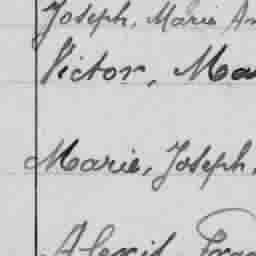 Joseph, Marie An
Victor, Ma
Marie, Joseph,
Alexis Fran